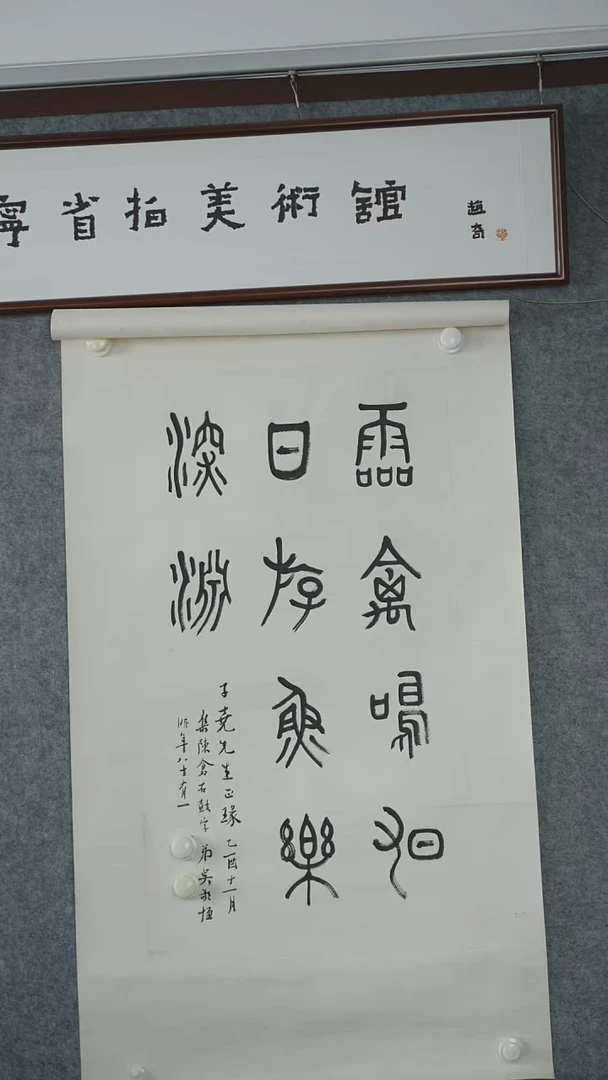 寧省拍美術館
趙奇
霝禽鳴旭
日斿魚樂
深淵
子堯先生正瑑 乙酉十一月
集陳倉石鼓字 弟吳敬恒
時年八十有一